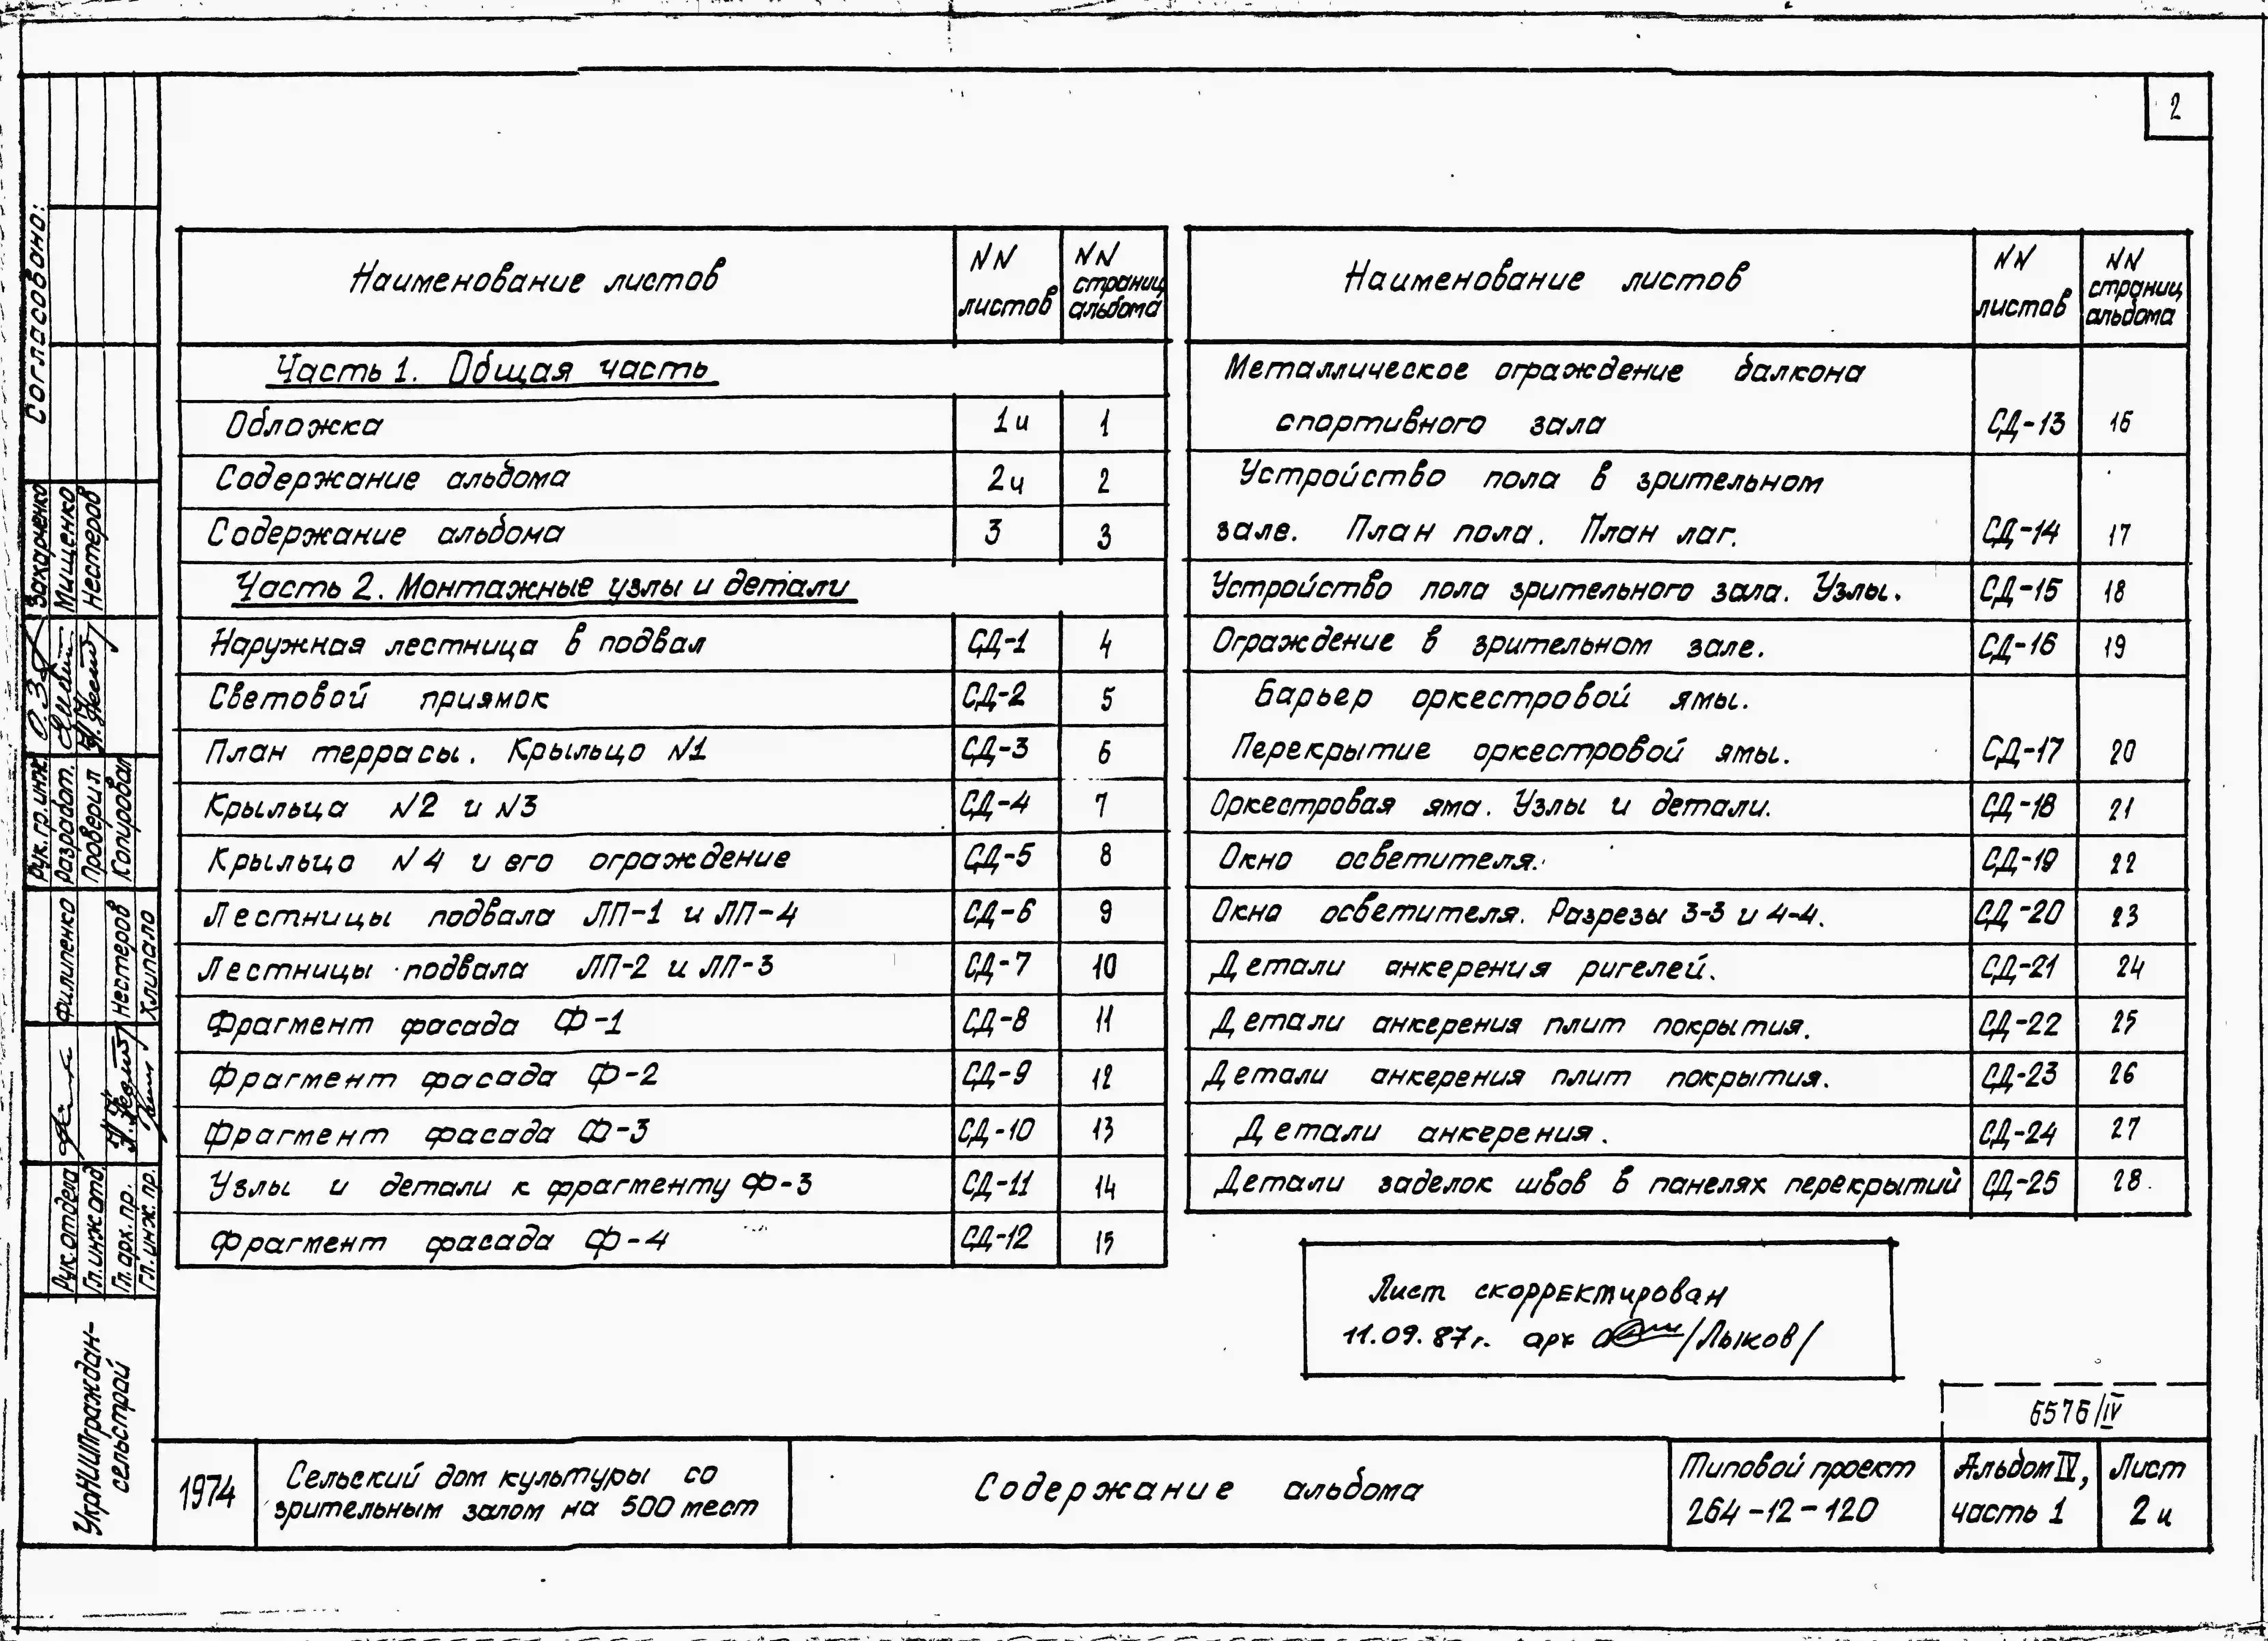 2
Наименование листов | NN листов | NN страниц альбома
Часть 1. Общая часть
Обложка | 1и | 1
Содержание альбома | 2и | 2
Содержание альбома | 3 | 3
Часть 2. Монтажные узлы и детали
Наружная лестница в подвал | СД-1 | 4
Световой приямок | СД-2 | 5
План террасы. Крыльцо N1 | СД-3 | 6
Крыльца N2 и N3 | СД-4 | 7
Крыльцо N4 и его ограждение | СД-5 | 8
Лестницы подвала ЛП-1 и ЛП-4 | СД-6 | 9
Лестницы подвала ЛП-2 и ЛП-3 | СД-7 | 10
Фрагмент фасада Ф-1 | СД-8 | 11
Фрагмент фасада Ф-2 | СД-9 | 12
Фрагмент фасада Ф-3 | СД-10 | 13
Узлы и детали к фрагменту Ф-3 | СД-11 | 14
Фрагмент фасада Ф-4 | СД-12 | 15
Наименование листов | NN листов | NN страниц альбома
Металлическое ограждение балкона
спортивного зала | СД-13 | 16
Устройство пола в зрительном
зале. План пола. План лаг. | СД-14 | 17
Устройство пола зрительного зала. Узлы. | СД-15 | 18
Ограждение в зрительном зале. | СД-16 | 19
Барьер оркестровой ямы.
Перекрытие оркестровой ямы. | СД-17 | 20
Оркестровая яма. Узлы и детали. | СД-18 | 21
Окно осветителя. | СД-19 | 22
Окно осветителя. Разрезы 3-3 и 4-4. | СД-20 | 23
Детали анкерения ригелей. | СД-21 | 24
Детали анкерения плит покрытия. | СД-22 | 25
Детали анкерения плит покрытия. | СД-23 | 26
Детали анкерения. | СД-24 | 27
Детали заделок швов в панелях перекрытий | СД-25 | 28
Лист скорректирован
11.09.87г. арх /Лыков/
6576/IV
1974
Сельский дом культуры со
зрительным залом на 500 мест
Содержание альбома
Типовой проект
264-12-120
Альбом IV,
часть 1
Лист
2и
Согласовано:
Рук.гр.инж. Захарченко
Разработ. Мищенко
Проверил Нестеров
Копировал
Рук.отдела Филипенко
Гл.инж.отд.
Гл.арх.пр. Нестеров
Гл.инж.пр. Хлипало
УкрНИИПграждан-
сельстрой